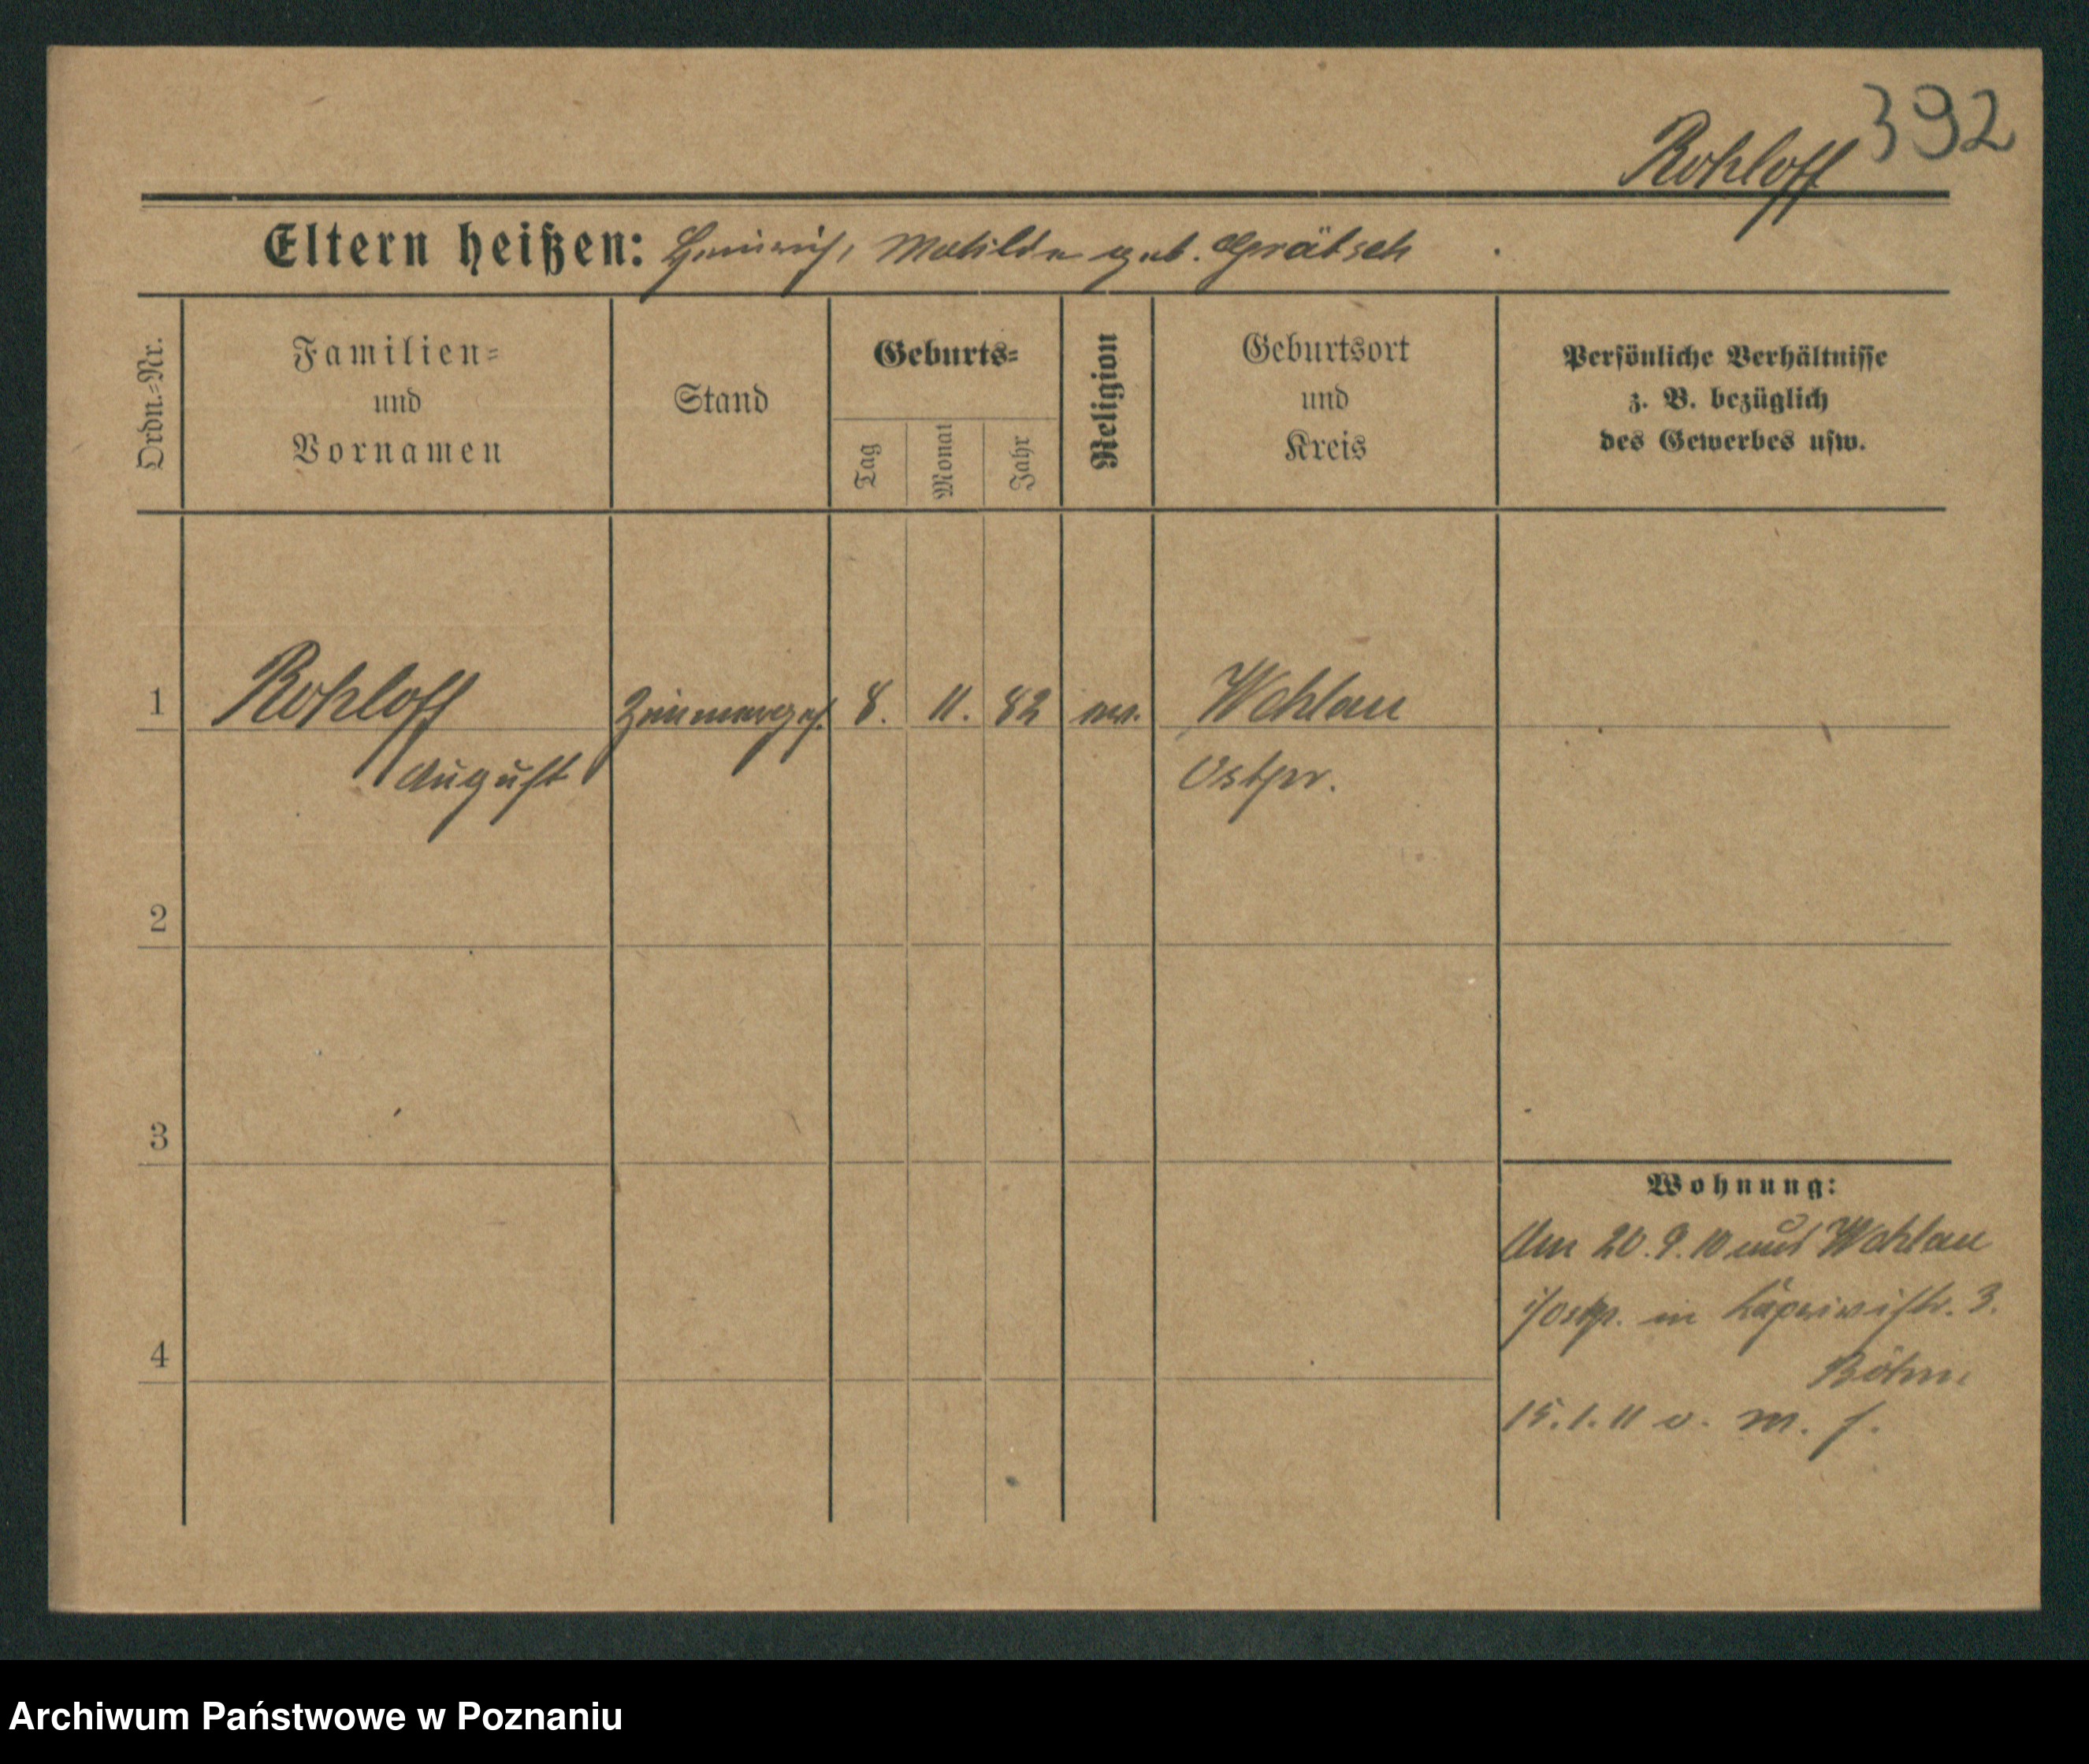 392
Rohloff
Eltern heißen: Heinrich, Mathilde geb. Grätsch
Ordn.=Nr.
Familien=
und
Vornamen
Stand
Geburts=
Tag
Monat
Jahr
Religion
Geburtsort
und
Kreis
Persönliche Verhältnisse
z. B. bezüglich
des Gewerbes usw.
1 Rohloff Zimmerges. 8. 11. 82 ev. Wehlau
August Ostpr.
2
3
4
Wohnung:
Am 20. 9. 10 aus Wehlau
i/Ostp. in Kapriwistr. 3.
Böhm
15. 1. 11 v. m. f.
Archiwum Państwowe w Poznaniu